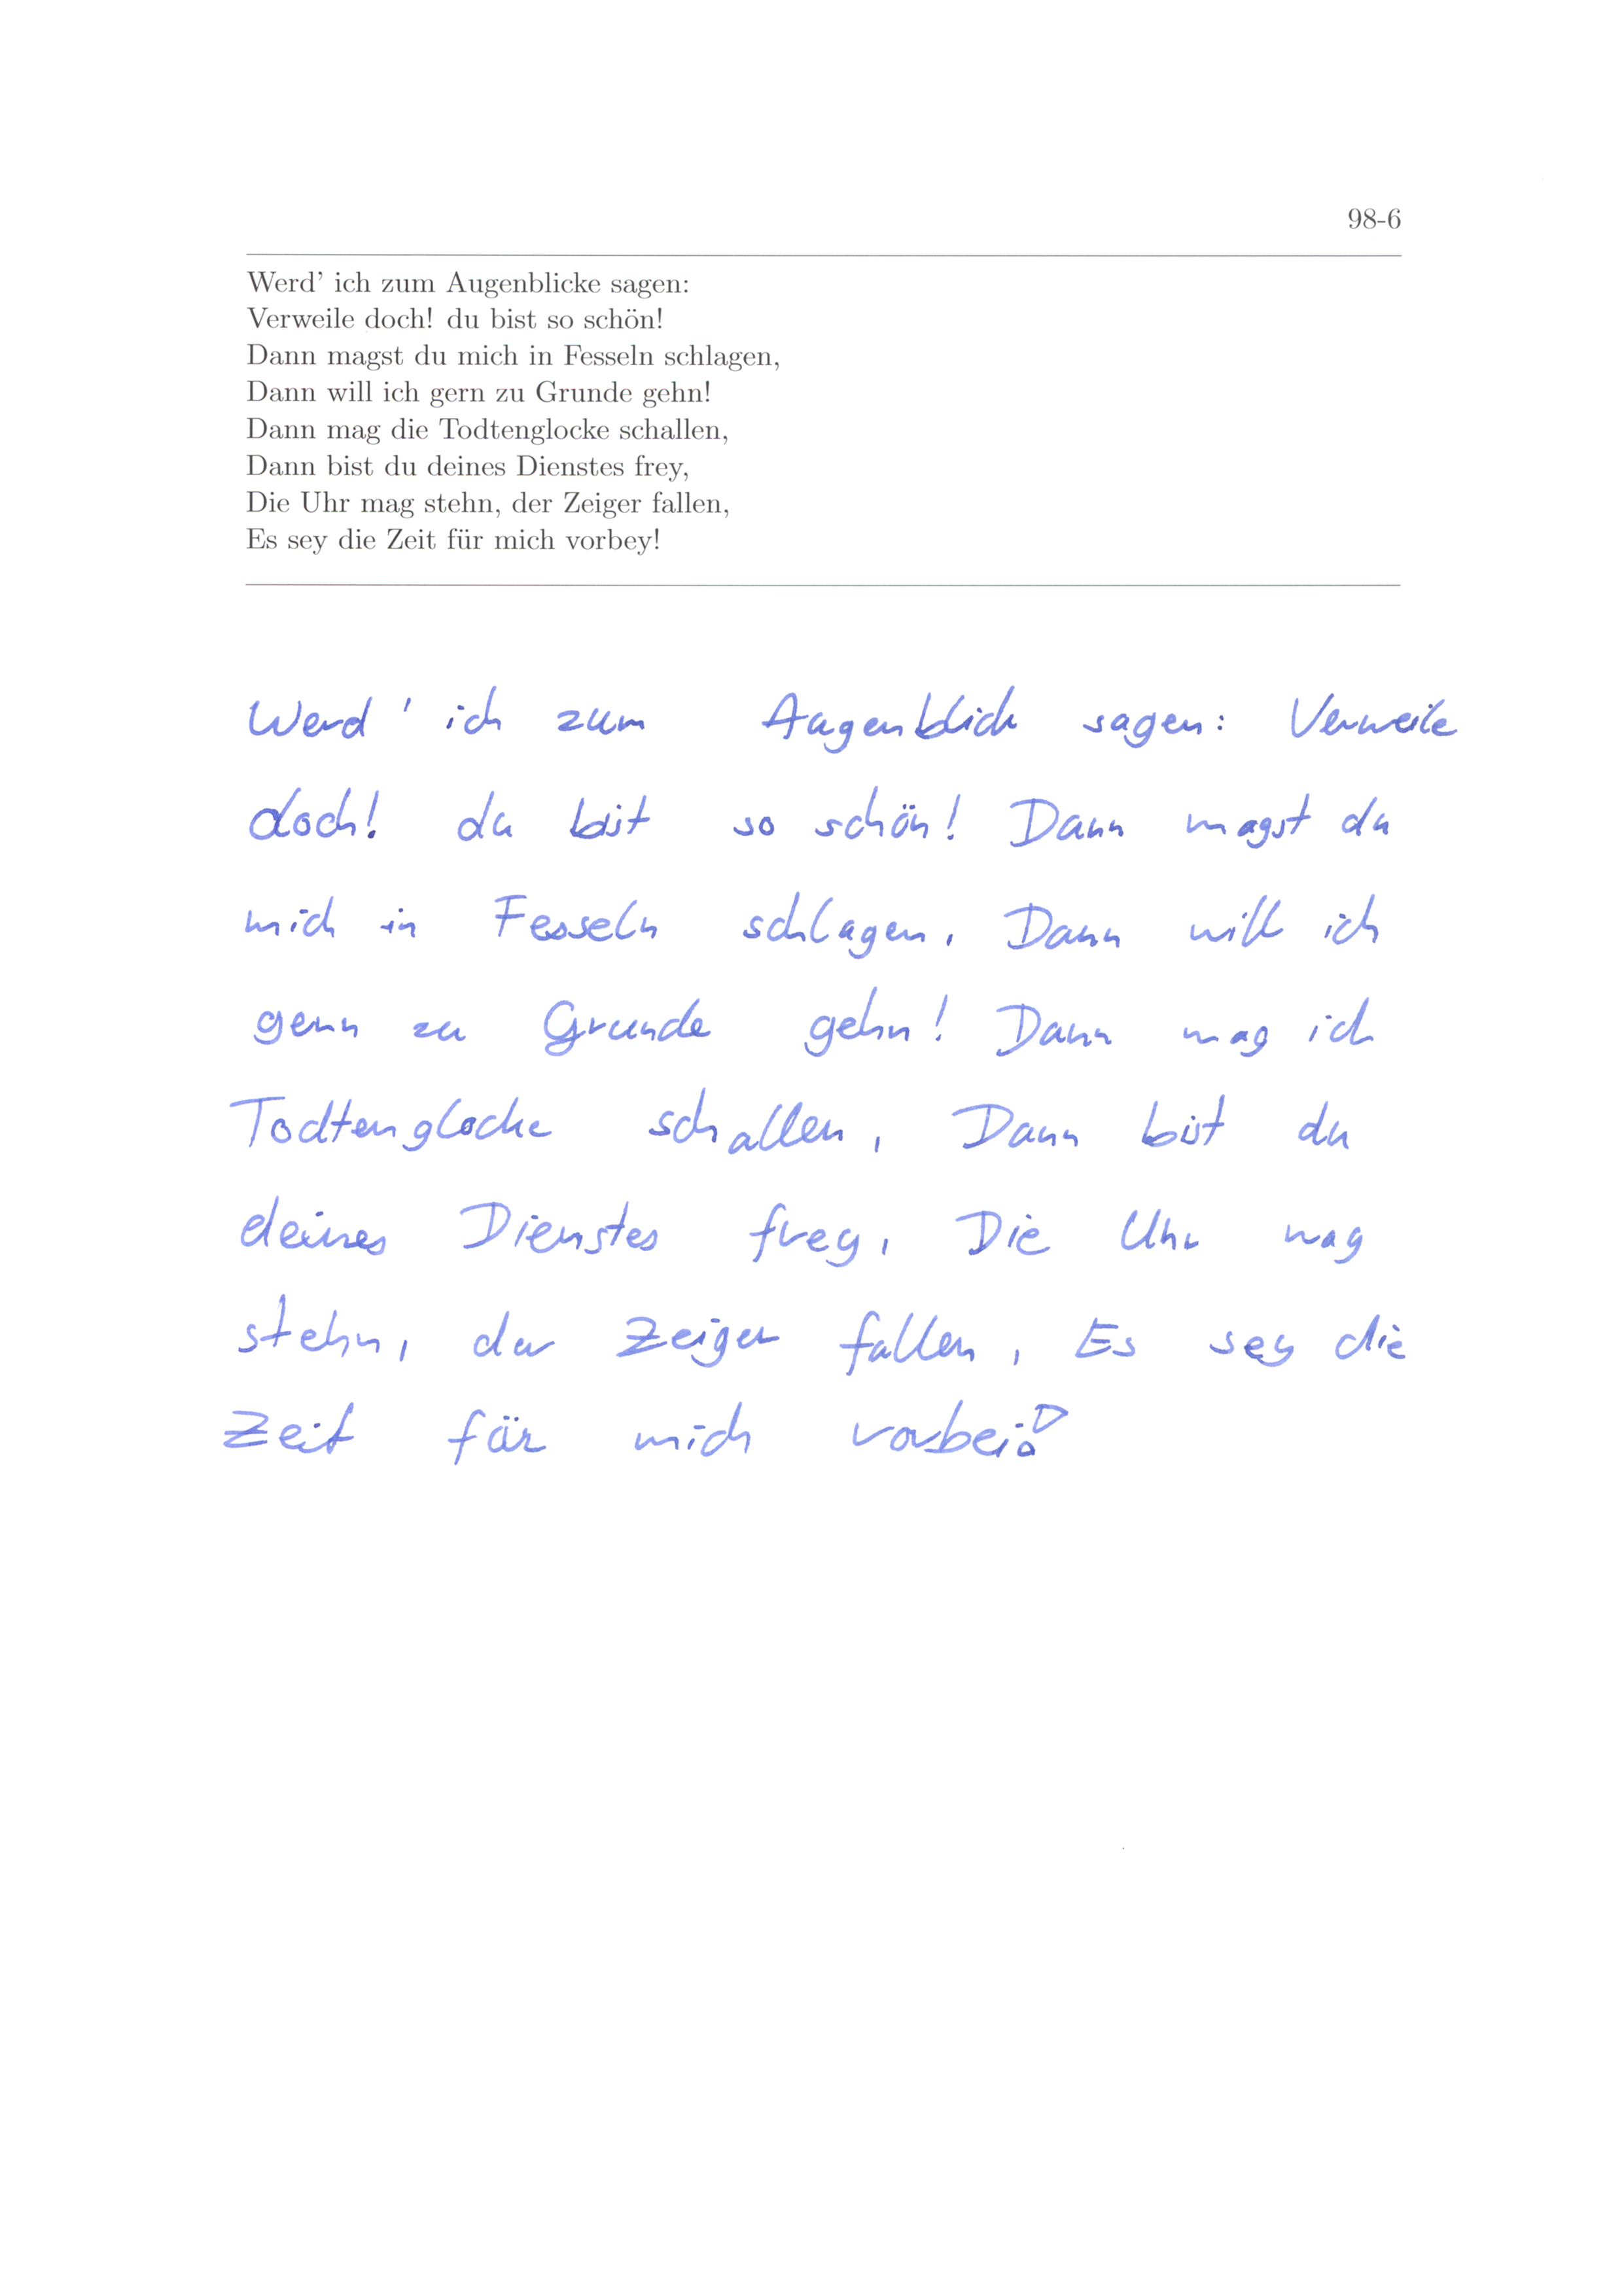 98-6
Werd' ich zum Augenblicke sagen:
Verweile doch! du bist so schön!
Dann magst du mich in Fesseln schlagen,
Dann will ich gern zu Grunde gehn!
Dann mag die Todtenglocke schallen,
Dann bist du deines Dienstes frey,
Die Uhr mag stehn, der Zeiger fallen,
Es sey die Zeit für mich vorbey!
Werd' ich zum Augenblick sagen: Verweile
doch! du bist so schön! Dann magst du
mich in Fesseln schlagen, Dann will ich
gern zu Grunde gehn! Dann mag ich
Todtenglocke schallen, Dann bist du
deines Dienstes frey, Die Uhr mag
stehn, der Zeiger fallen, Es sey die
Zeit für mich vorbei!